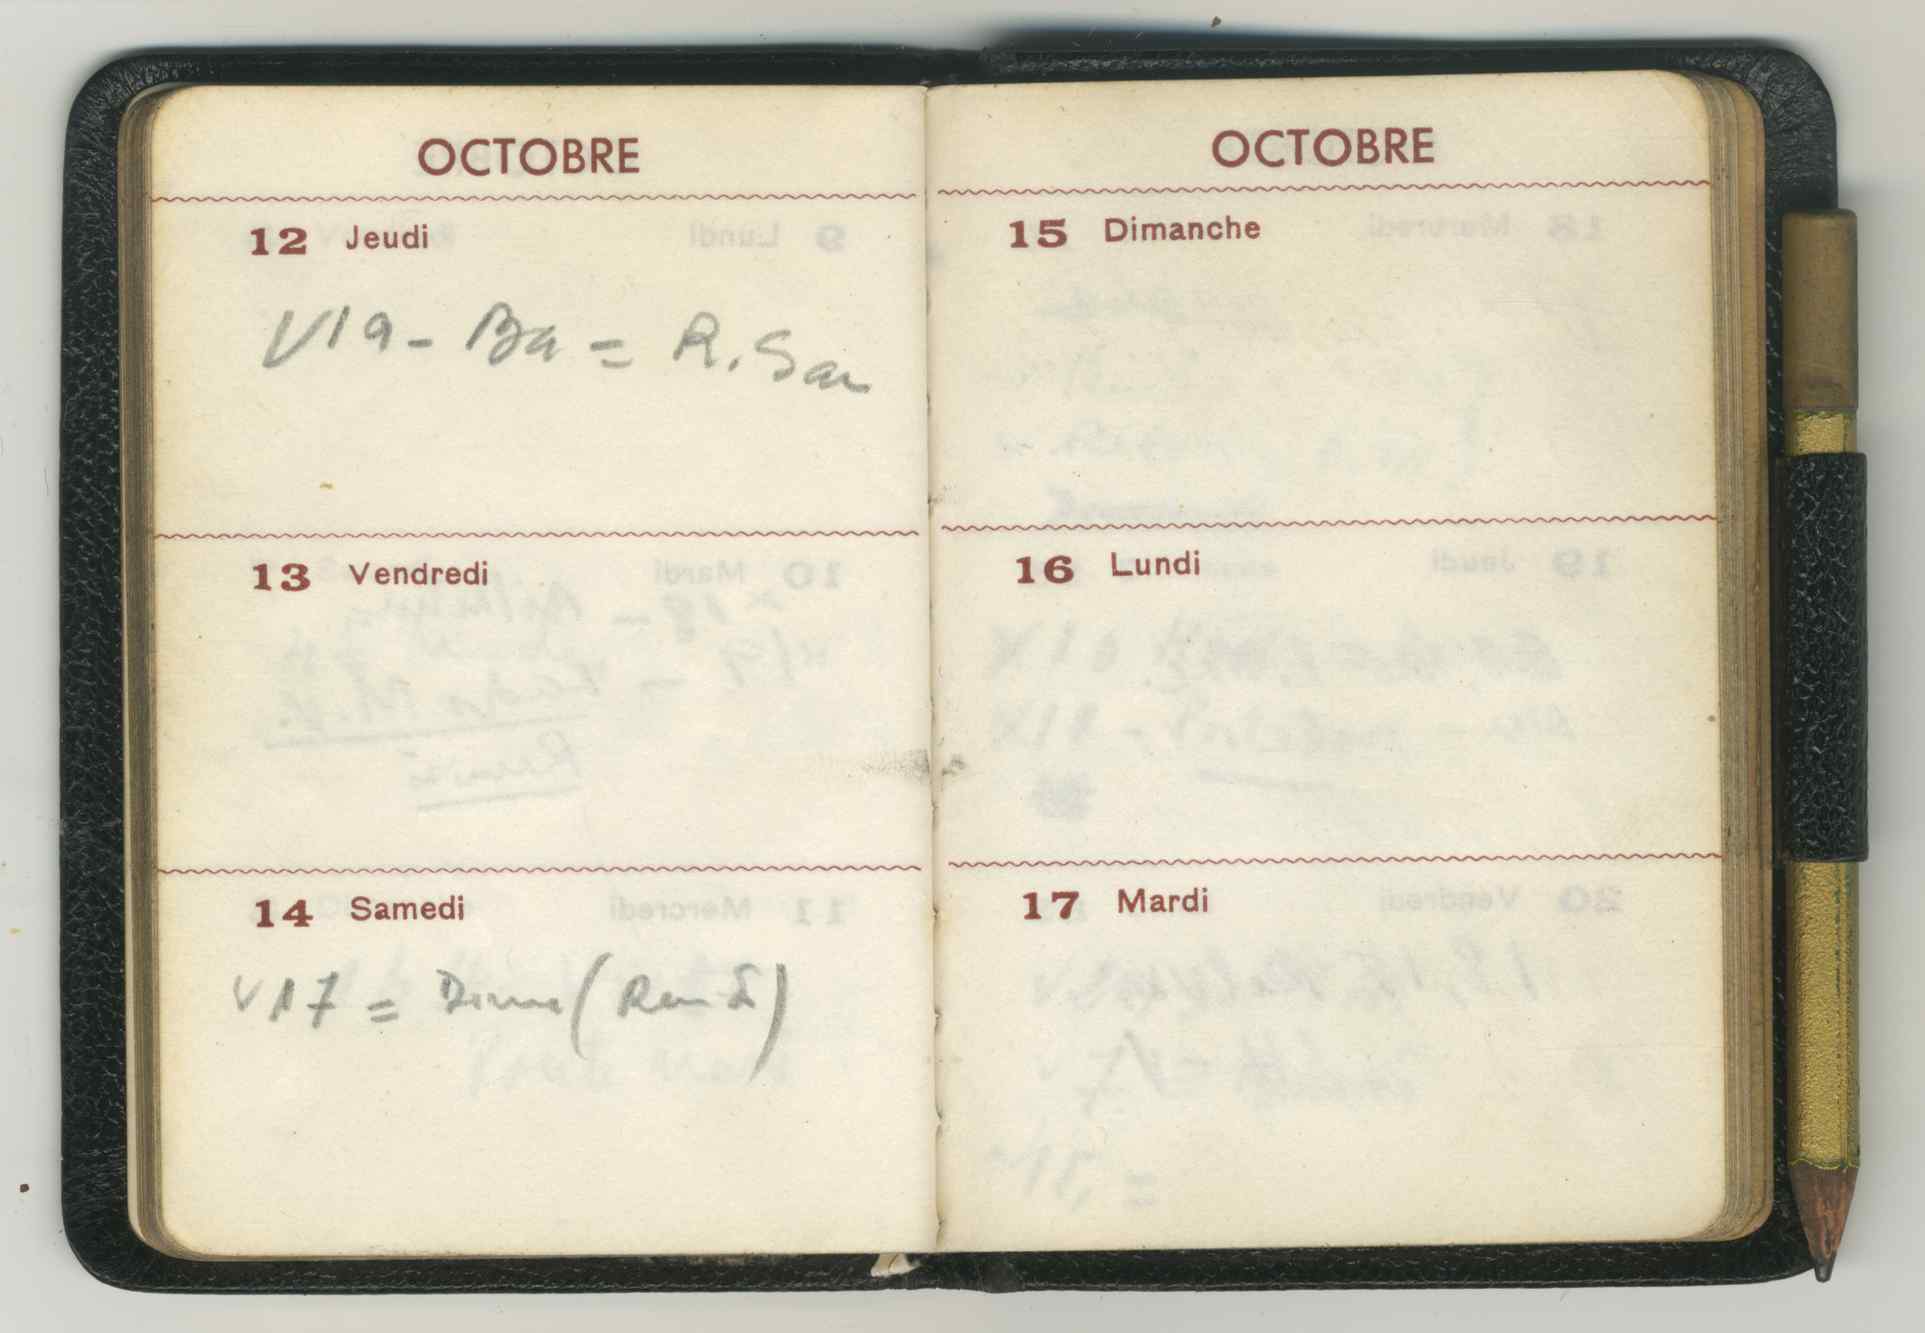 OCTOBRE
12 Jeudi
V19 - Ba = R. San
13 Vendredi
14 Samedi
V17 =
OCTOBRE
15 Dimanche
16 Lundi
17 Mardi